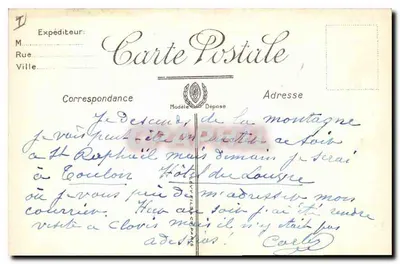 Expéditeur:
M
Rue
Ville
Carte Postale
Correspondance
Adresse
Modèle Déposé
Je descends de la montagne
je vais peut être ce soir
a St Raphaël mais demain je serai
a Toulon Hôtel du Louvre
où je vous prie de m'adresser mon
courrier. Hier au soir j'ai été rendre
visite a Clovis mais il n'y était pas